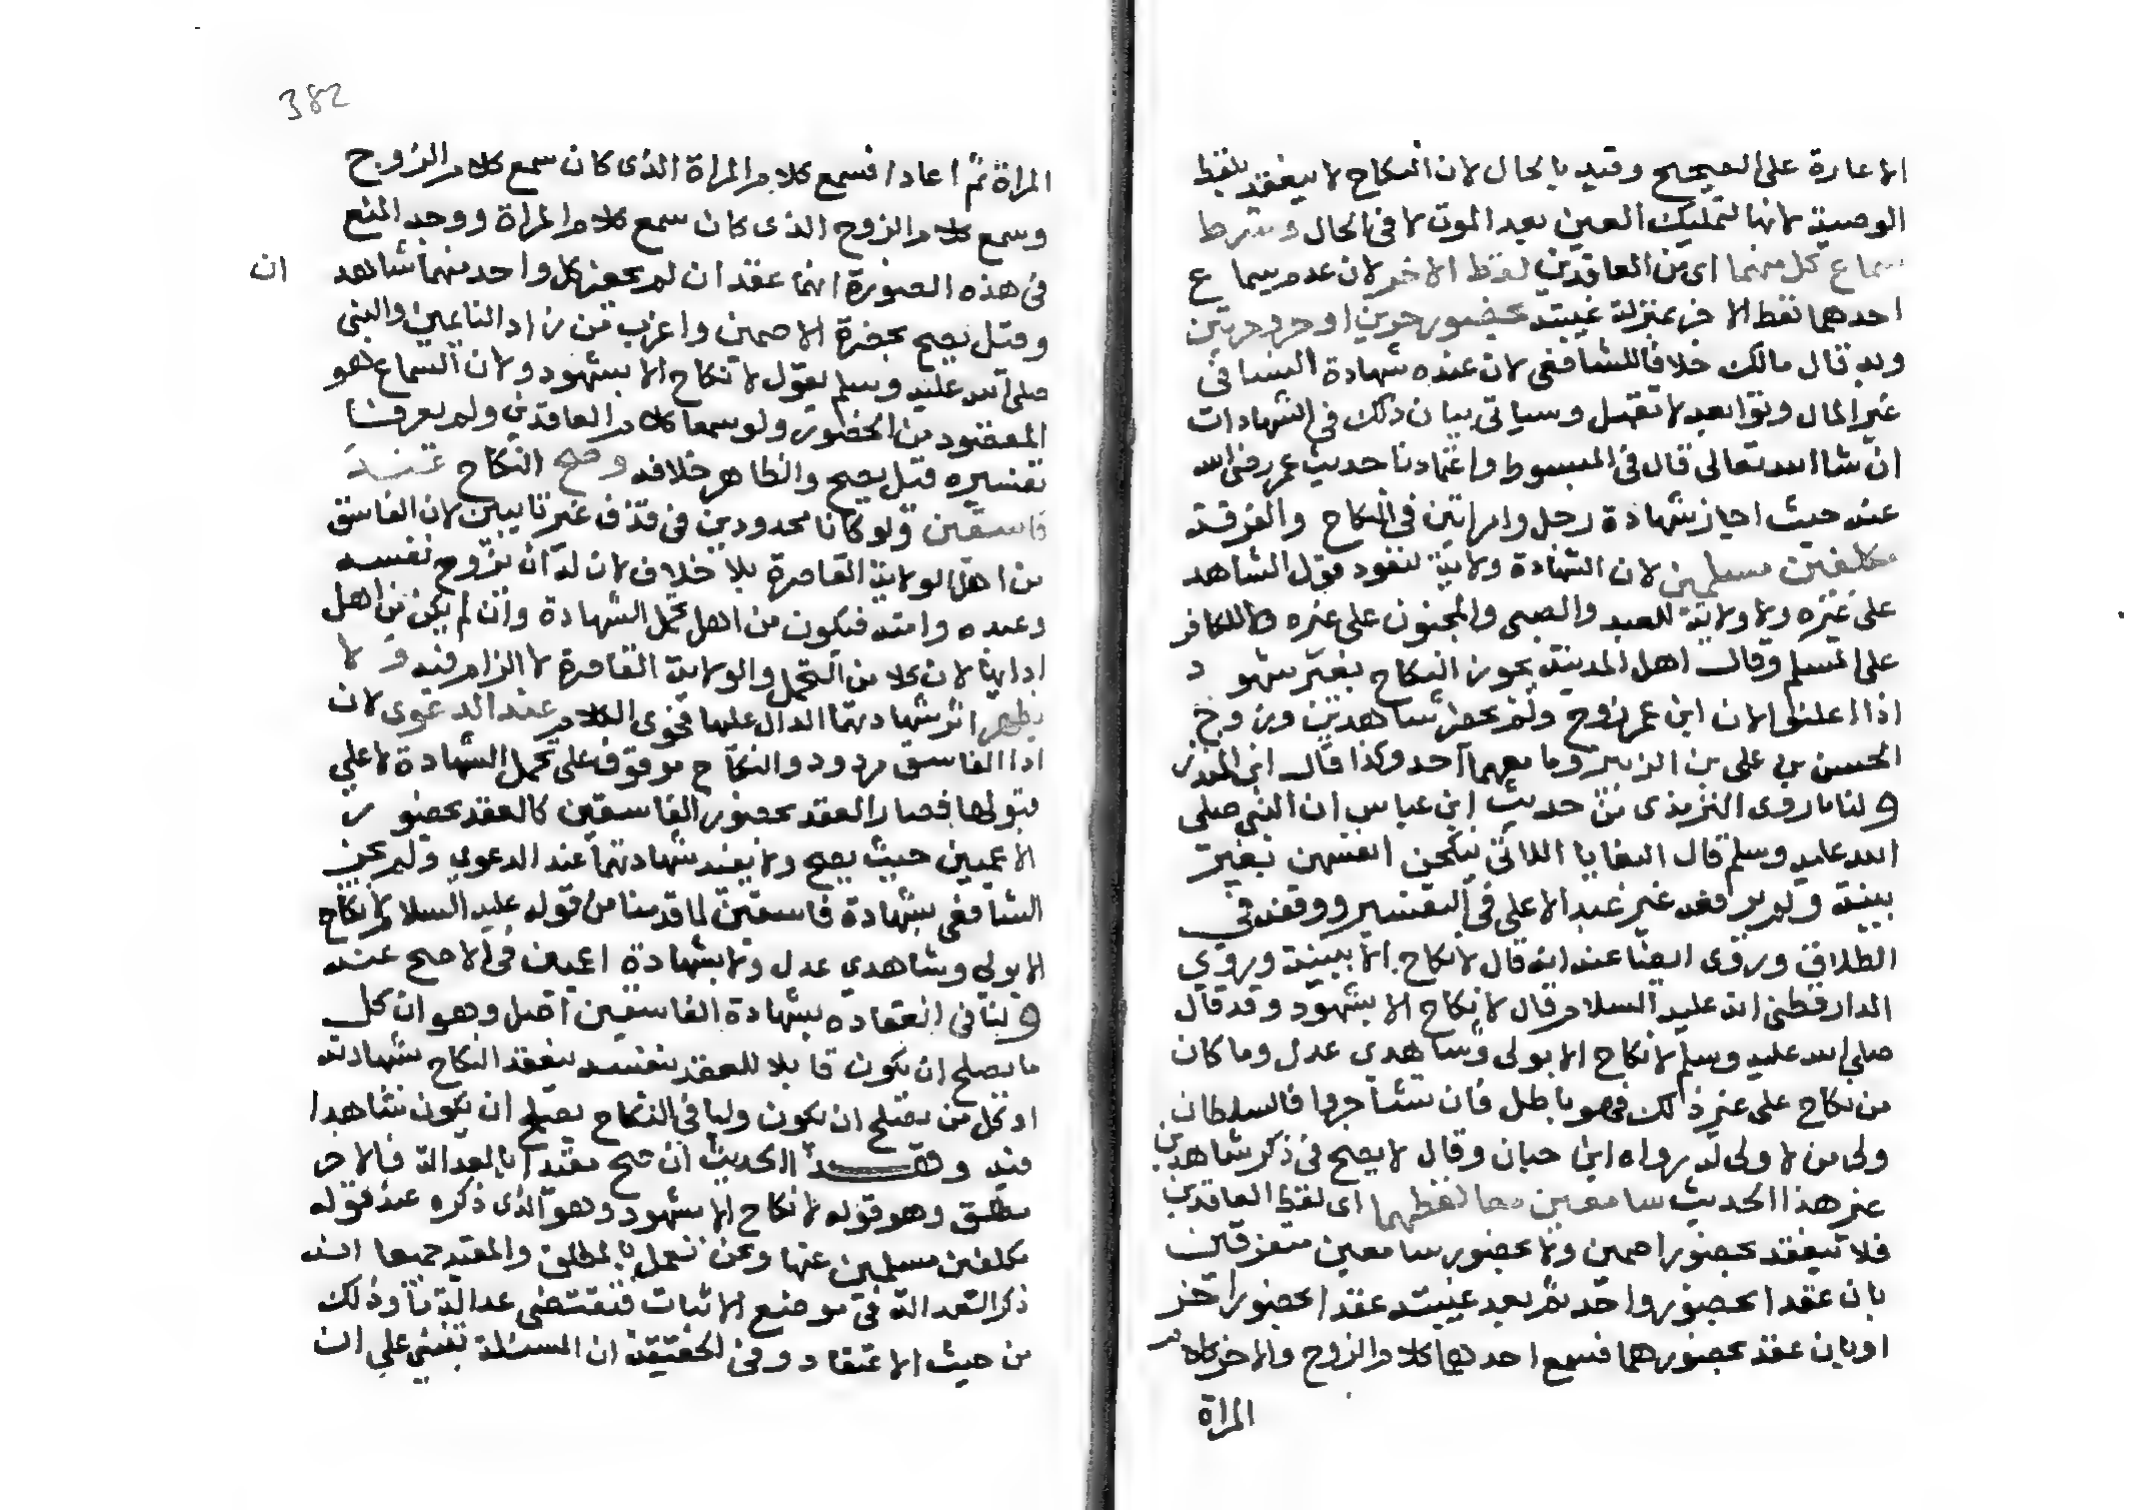 الاعارة على الصحيح وقيد بالحال لان النكاح لا ينعقد بلفظ
الوصية لانها لتمليك العين بعد الموت لا في الحال وشرط
سماع كل منهما اى من العاقدين لفظ الاخر لان عدم سماع
احدهما لفظ الاخر بمنزلة غيبته بحضور حرين او حر وحرتين
وبه قال مالك خلافا للشافعى لان عنده شهادة النسا فى
غير المال وتوابعه لا تقبل وسياتى بيان ذلك فى الشهادات
ان شا الله تعالى قال فى المبسوط واعتمادنا حديث عمر رضى الله
عنه حيث اجاز شهادة رجل وامراتين فى النكاح والفرقة
مكلفين مسلمين لان الشهادة ولاية لنفوذ قول الشاهد
على غيره ولا ولاية للعبد والصبى والمجنون على غيره ولا للكافر
على المسلم وقالت اهل المدينة يجوز النكاح بغير شهود
اذا اعلنوا لان ابن عمر زوج ولم يحضر شاهدين وزوج
الحسن بن على بن الزبير وما معهما احد وكذا قال ابن المنذر
ولنا ما روى الترمذى من حديث ابن عباس ان النبى صلى
الله عليه وسلم قال البغايا اللاتى ينكحن انفسهن بغير
بينة ولم يرفعه غير عبد الاعلى فى التفسير ووقفه فى
الطلاق وروى ايضا عنه انه قال لا نكاح الا ببينة وروى
الدارقطنى انه عليه السلام قال لا نكاح الا بشهود وقد قال
صلى الله عليه وسلم لا نكاح الا بولى وشاهدى عدل وما كان
من نكاح على غير ذلك فهو باطل فان تشاجروا فالسلطان
ولى من لا ولى له رواه ابن حبان وقال لا يصح فى ذكر شاهدين
غير هذا الحديث سامعين معا لفظهما اى لفظ العاقدين
فلا ينعقد بحضور اصمين ولا بحضور سامعين متفرقين
بان عقدا بحضور واحد ثم بعد غيبته عقدا بحضور اخر
او بان عقد بحضورهما فسمع احدهما كلام الزوج والاخر كلام
المراة
382
المراة ثم اعادا فسمع كلام المراة الذى كان سمع كلام الزوج
وسمع كلام الزوج الذى كان سمع كلام المراة ووجه المنع
فى هذه الصورة انهما عقدان لم يحضر كل واحد منهما شاهدان
وقيل يصح بحضرة الاصمين واغرب من زاد النايمين والنبى
صلى الله عليه وسلم يقول لا نكاح الا بشهود ولان السماع هو
المقصود من الحضور ولو سمعا كلام العاقدين ولم يعرفا
تفسيره قيل يصح والظاهر خلافه وصح النكاح عند
فاسقين ولو كانا محدودين فى قذف غير تايبين لان الفاسق
من اهل الولاية القاصرة بلا خلاف لان له ان يزوج نفسه
وعبده وامته فيكون من اهل تحمل الشهادة وان لم يكن من اهل
ادايها لان كلا من التحمل والولاية القاصرة لا الزام فيه ولا
يظهر اثر شهادتهما الدال عليها فحوى الكلام عند الدعوى لان
ادا الفاسق مردود والنكاح موقوف على تحمل الشهادة لا على
قبولها فصار العقد بحضور الفاسقين كالعقد بحضور
الاعميين حيث يصح ولا يفيد شهادتهما عند الدعوى ولم يجز
الشافعى بشهادة فاسقين لما قدمنا من قوله عليه السلام لا نكاح
الا بولى وشاهدى عدل ولا بشهادة اعميين فى الاصح عنده
ولنا فى انعقاده بشهادة الفاسقين اصل وهو ان كل
ما يصلح ان يكون قابلا للعقد بنفسه ينعقد النكاح بشهادته
او كل من يصلح ان يكون وليا فى النكاح يصلح ان يكون شاهدا
فيه وهذا الحديث ان صح مقيدا بالعدالة فالاخر
مطلق وهو قوله لا نكاح الا بشهود وهو الذى ذكره عند قوله
مكلفين مسلمين عنها ونحن نعمل بالمطلق والمقيد جميعا انه
ذكر العدالة فى موضع الاثبات فيقتضى عدالة ما وذلك
من حيث الاعتقاد وفى الحقيقة ان المسئلة تبتنى على ان